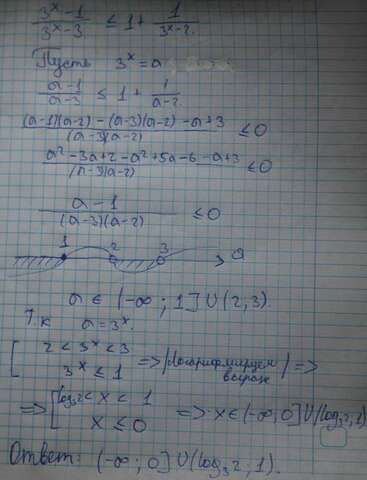 (3^x - 1)/(3^x - 3) ≤ 1 + 1/(3^x - 2).
Пусть 3^x = a
(a-1)/(a-3) ≤ 1 + 1/(a-2).
((a-1)(a-2) - (a-3)(a-2) - a + 3)/((a-3)(a-2)) ≤ 0
(a² - 3a + 2 - a² + 5a - 6 - a + 3)/((a-3)(a-2)) ≤ 0
(a - 1)/((a-3)(a-2)) ≤ 0
1 2 3 a
a ∈ (-∞; 1] U (2, 3)
Т.к a = 3^x.
[ 2 < 3^x < 3
3^x ≤ 1 => |Логарифмируем выраж| =>
=> [ log₃2 < x < 1
x ≤ 0 => x ∈ (-∞, 0] U (log₃2, 1)
Ответ: (-∞; 0] U (log₃2; 1).